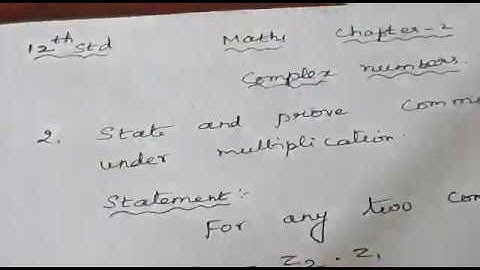 12th Std Maths Chapter-2
Complex numbers.
2. State and prove comm
under multiplication.
Statement:-
For any two com
z2 . z1